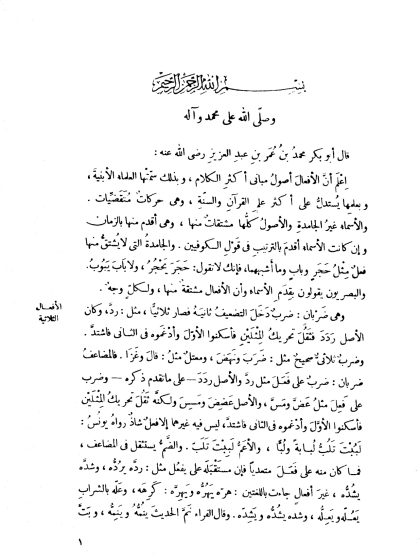 بسم الله الرحمن الرحيم
وصلّى الله على محمد وآله
قال أبو بكر محمدُ بنُ عُمَر بنِ عبدِ العزيزِ رضى الله عنه :
اِعلم أنَّ الأفعالَ أصولُ مبانى أكثرِ الكلام ، وبذلك سمَّتْها العلماءُ الأبنيةَ ،
وبعلمِها يُستدلُّ على أكثرِ علمِ القرآنِ والسنَّةِ ، وهى حركاتٌ مُتَقَضِّيات .
والأسماءُ غيرُ الجامدةِ والأصولُ كلُّها مشتقاتٌ منها ، وهى أقدمُ منها بالزمان
وإن كانت الأسماءُ أقدمَ بالترتيب فى قَوْلِ الكوفيين . والجامدةُ التى لا يُشتقُّ منها
فعلٌ مِثْلُ حَجَرٍ وبابٍ وما أشبههما، فإنك لا تقول: حَجَرَ يَحْجُرُ ، ولا بابَ يَبُوبُ.
والبصريون يقولون بِقِدَمِ الأسماءِ وأن الأفعال مشتقة منها ، ولكلٍّ وجهٌ .
الأفعال
الثلاثية
وهى ضَرْبان : ضربٌ دَخَلَ التضعيفُ ثانيَهُ فصار ثلاثيًّا ، مثل : ردَّ، وكان
الأصل رَدَدَ فثَقُلَ تحريكُ المِثْلَيْنِ فأسكنوا الأوَّلَ وأدْغموه فى الثانى فاشتدَّ .
وضربٌ ثلاثىٌّ صحيحٌ مثل : ضَرَبَ ونَهَضَ ، ومعتلٌّ مثل : قال وغزَا . فالمضاعف
ضربان : ضربٌ على فَعَلَ مثل ردَّ والأصل ردَدَ – على ما تقدم ذكره – وضرب
على فَعِلَ مثل عَضَّ ومَسَّ ، والأصل عَضِضَ ومَسِسَ ولكنَّه ثَقُلَ تحريكُ المِثْلَيْنِ
فأسكنوا الأوَّلَ وأدْغموه فى الثانى فاشتدَّ، ليس فيه غيرهما إلا فعلٌ شاذٌّ رواه يونُس :
لَبُبْتَ تَلُبُّ لَبابةً ولُبًّا ، والأعَمُّ لَبِبْتَ تَلَبُّ . والضَّمُّ يستثقل فى المضاعف ،
فما كان منه على فَعَلَ متعدياً فإن مستَقْبَلَه على يفعُل مثل : ردَّه يَرُدُّه ، وشدَّه
يشُدُّه ، غيرَ أفعالٍ جاءت باللغتين : هرَّه يَهُرُّه ويَهِرُّه : كَرِهَه ، وعَلَّه بالشراب
يَعُلُّه ويَعِلُّه ، وشده يشُدُّه ويَشِدُّه . وقال الفراء نمَّ الحديثَ ينُمُّه وينِمُّه ، وبَتَّ
١